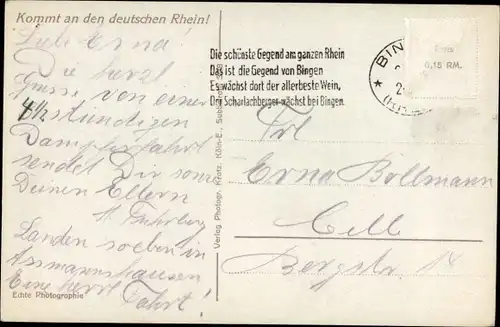 Kommt an den deutschen Rhein!
Lieb Erna!
Die herzl
Grüsse von einer
4 1/2 stündigen
Dampferfahrt
sendet Dir sowie
Deinen Eltern
H. Fuhrberg
Landen soeben in
Assmannshausen
Eine herrl Fahrt!
Echte Photographie
Verlag Photogr. Kratz, Köln-E.,
Die schönste Gegend am ganzen Rhein
Das ist die Gegend von Bingen
Es wächst dort der allerbeste Wein,
Der Scharlachberger wächst bei Bingen.
BIN
0,15 RM.
Frl
Erna Bollmann
Celle
Bergstr. 14